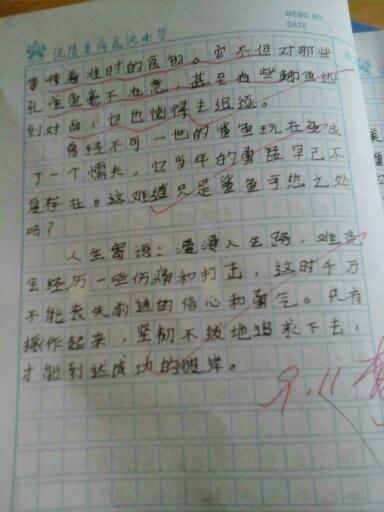 MEMO NO.
DATE
沅陵县荷花池小学
管住着准时的食物。它不但对那些
到对面，它也懒得去追逐。
曾经不可一世的鲨鱼现在变成
了一个懦夫，它当年的勇猛早已不
复存在。这难道只是鲨鱼可悲之处
吗？
人生寄语：漫漫人生路，难免
会经历一些伤痛和打击，这时千万
不能丧失前进的信心和勇气。只有
振作起来，坚韧不拔地追求下去，
才能到达成功的彼岸。
9.11